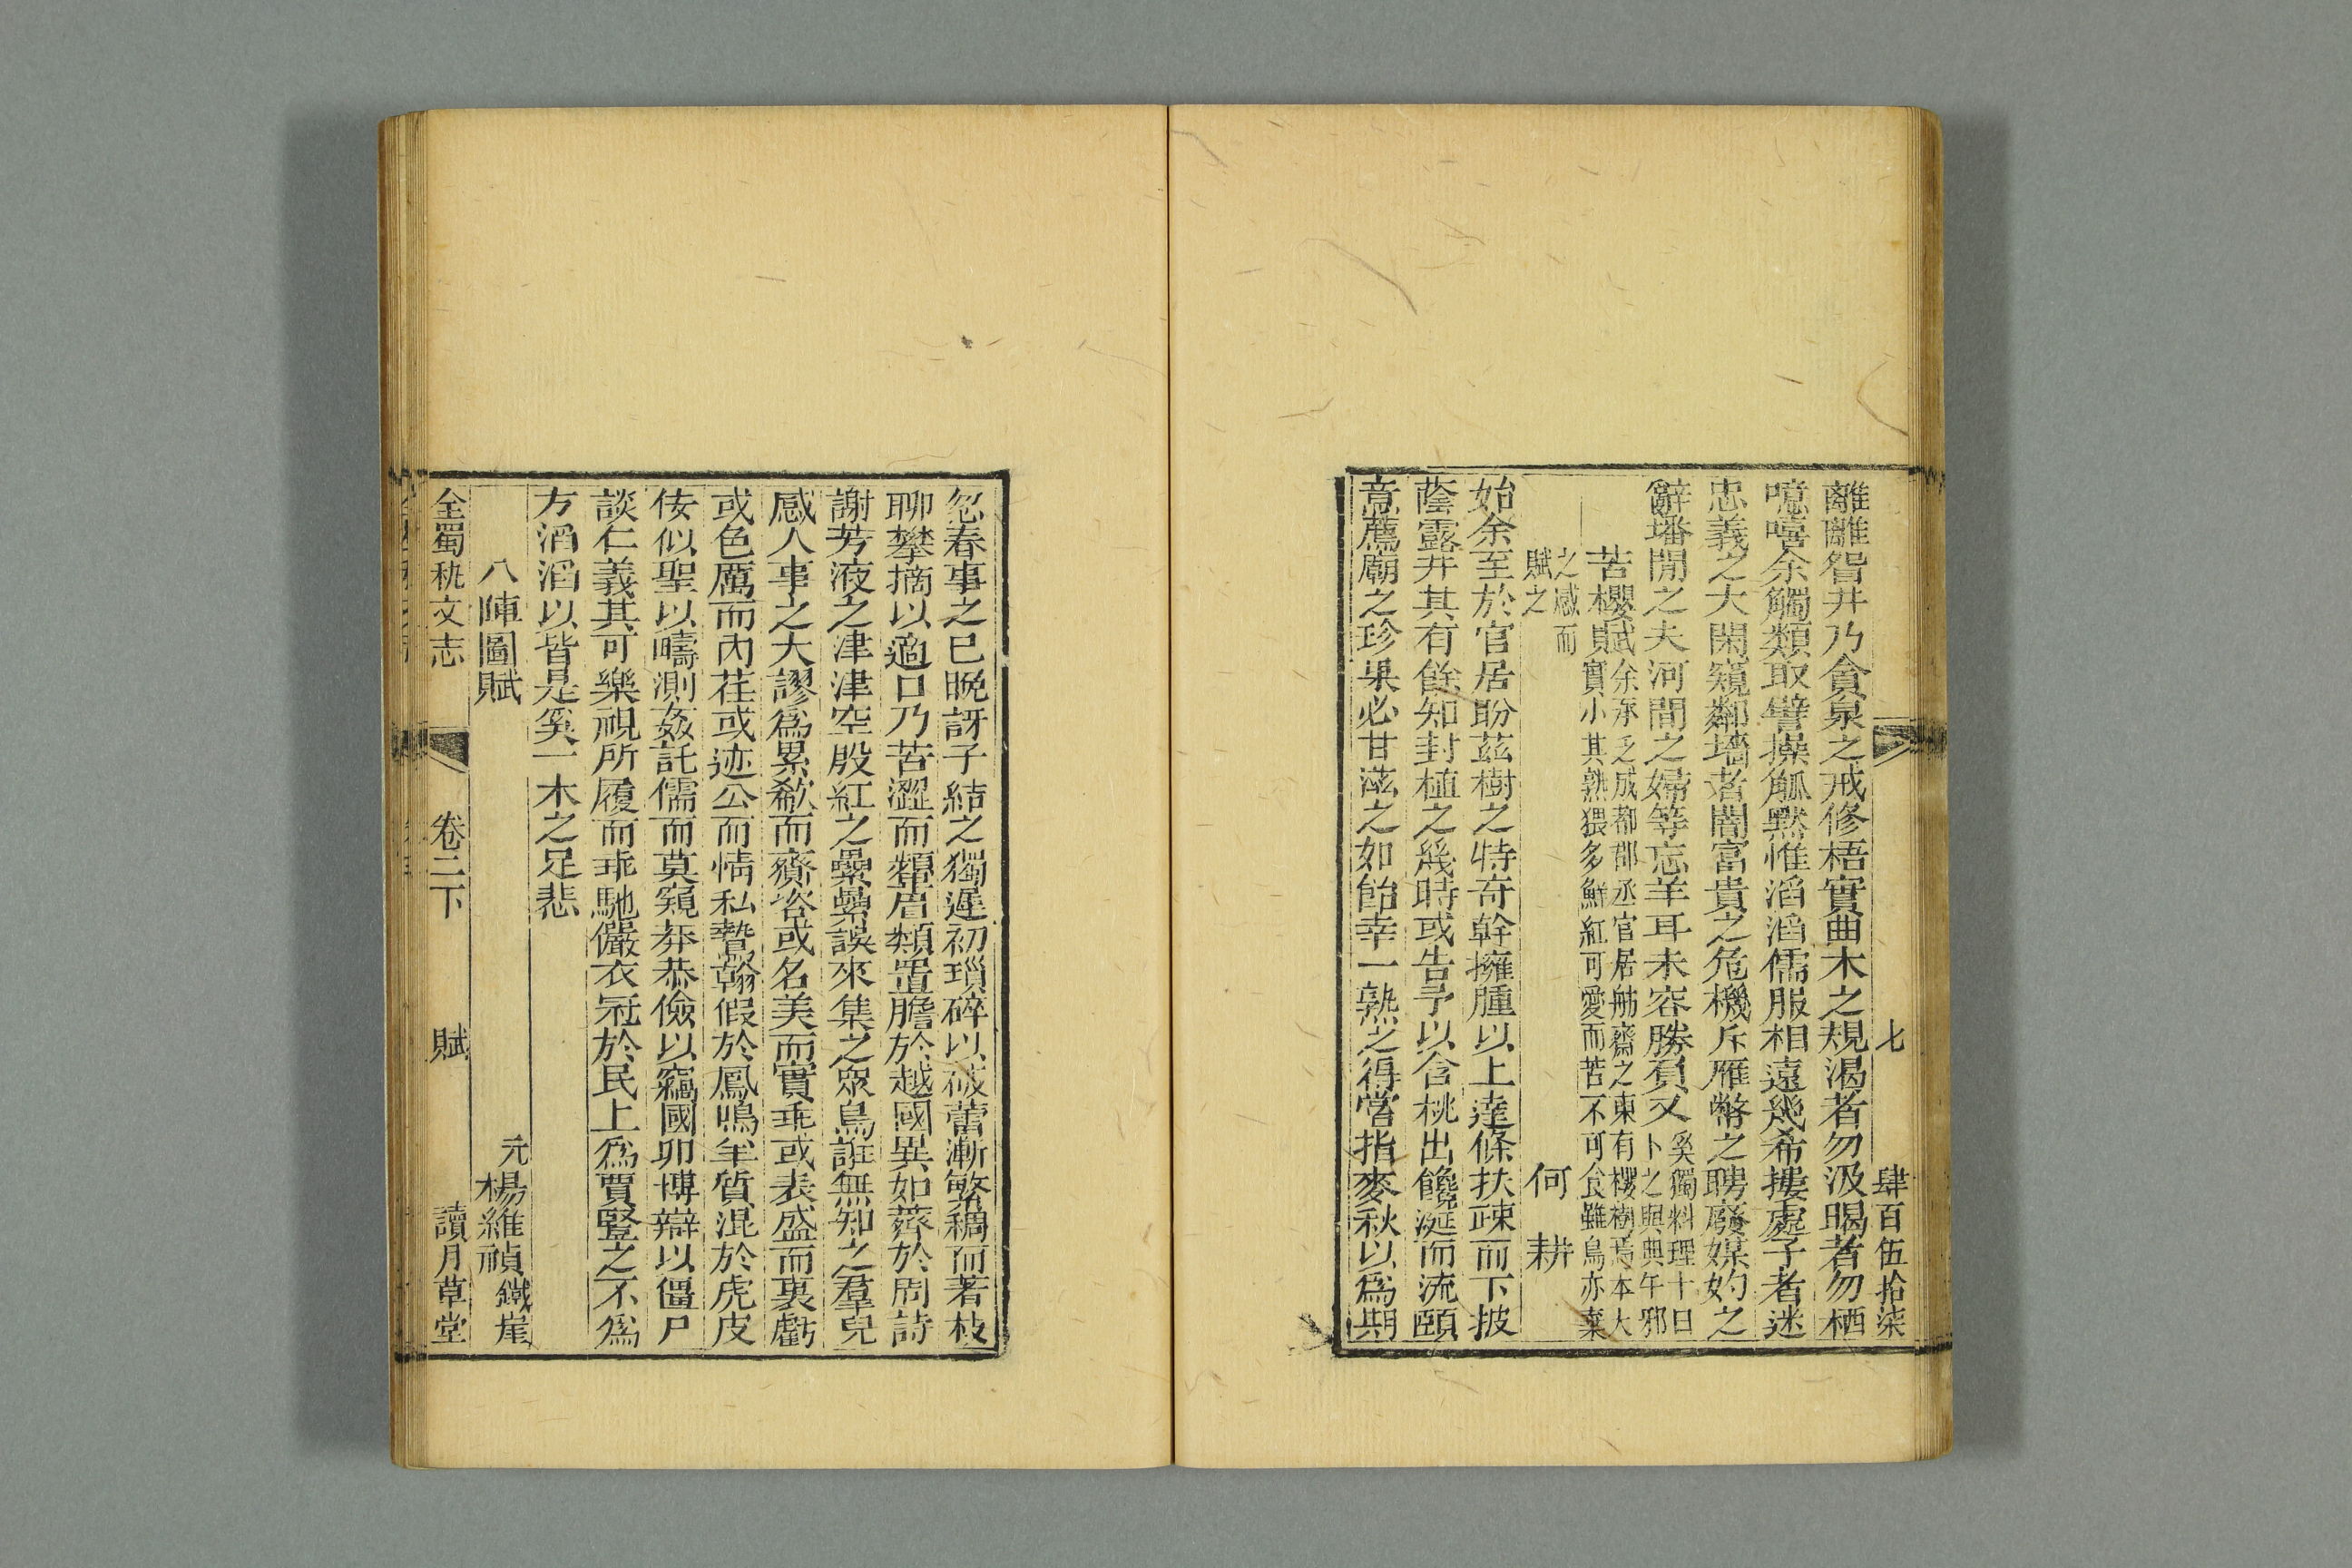 七 肆百伍拾柒
離離眢井乃貪泉之戒修梧實曲木之規渴者勿汲暍者勿栖
噫嘻余觸類取譬操觚默惟滔滔儒服相遠幾希摟處子者迷
忠義之大閑窺鄰墻者闇富貴之危機斥雁幣之聘廢媒妁之
辭墦閒之夫河間之婦等忘羊耳未容勝負又
奚獨料理十日
卜之與典午邪
苦櫻賦
余承乏成都郡丞官居舫齋之東有櫻樹焉本大
實小其熟猥多鮮紅可愛而苦不可食雖鳥亦棄
之感而
賦之
何耕
始余至於官居盼茲樹之特奇幹擁腫以上達條扶疎而下披
蔭露井其有餘知封植之幾時或告予以含桃出饞涎而流頤
意薦廟之珍果必甘滋之如飴幸一熟之得嘗指麥秋以爲期
忽春事之已晚訝子結之獨遲初瑣碎以破蕾漸繁稠而著枝
聊攀摘以適口乃苦澀而顰眉類置膽於越國異如薺於周詩
謝芳液之津津空殷紅之纍纍誤來集之眾鳥誑無知之羣兒
感人事之大謬爲累欷而齎咨或名美而實乖或表盛而裏虧
或色厲而內荏或迹公而情私鷙翰假於鳳鳴羊質混於虎皮
佞似聖以疇測姦託儒而莫窺莽恭儉以竊國卯博辯以僵尸
談仁義其可樂視所履而乖馳儼衣冠於民上爲賈豎之不爲
方滔滔以皆是奚一木之足悲
八陣圖賦 元楊維禎鐵崖
全蜀秇文志 卷二下 賦 讀月草堂